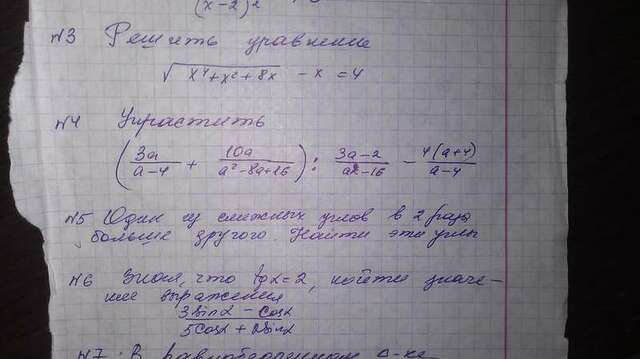 (x-2)²
N3 Решить уравнение
√(x⁴+x²+8x) - x = 4
N4 Упростить
(3a/(a-4) + 10a/(a²-8a+16)) : (3a-2)/(a²-16) - 4(a+4)/(a-4)
N5 Один из смежных углов в 2 раза
больше другого. Найти эти углы
N6 Зная, что tgα=2, найти значе-
ние выражения
(3sinα - cosα)/(5cosα + 2sinα)
N7. В равнобедренном